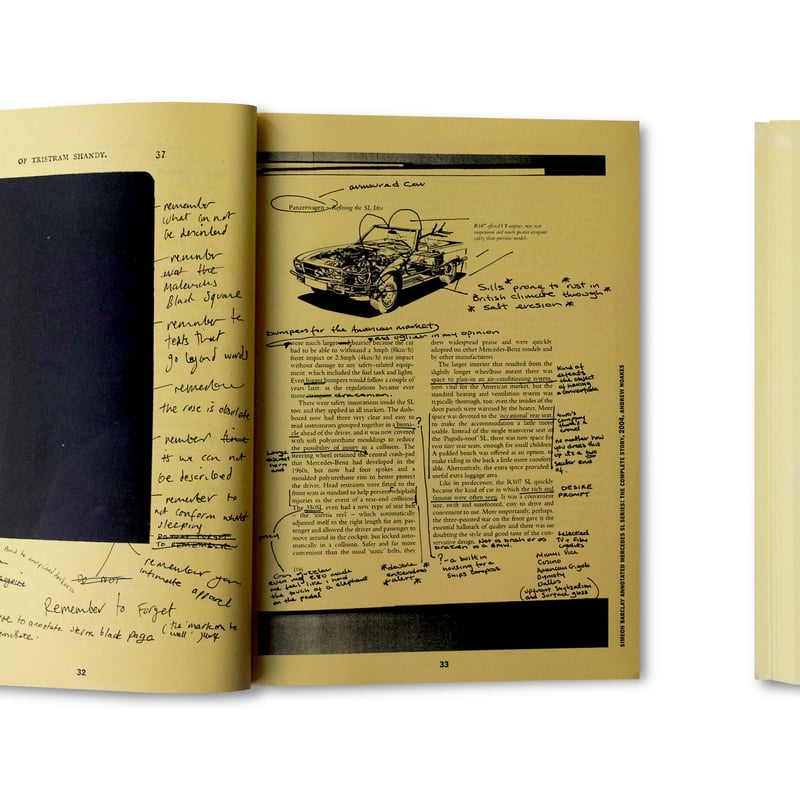 OF TRISTRAM SHANDY. 37
remember
what can not
be described
remember
the
Malevichs
Black Square
remember
texts that
go beyond words
the rose is obsolete
it we can not
be described
remember to
not conform whilst
sleeping
DO NOT
remember your
intimate apparel
Remember to Forget
to annotate sterne black page (the mark on the
wall)
32
armoured car
Panzerwagen – Refining the SL Idea
R107 offered V8 engines, new rear
suspension and much greater occupant
safety than previous models.
Sills * prone to * rust in
British climate through *
* salt erosion *
bumpers for the American market
uglier in my opinion
were much larger and heavier because the car
had to be able to withstand a 5mph (8km/h)
front impact or 2.5mph (4km/h) rear impact
without damage to any safety-related equip-
ment, which included the fuel tank and lights.
Even bigger bumpers would follow a couple of
years later, as the regulations became ever
more draconian.
There were safety innovations inside the SL
too, and they applied in all markets. The dash-
board now had three very clear and easy to
read instruments grouped together in a binna-
cle ahead of the driver, and it was now covered
with soft polyurethane mouldings to reduce
the possibility of injury in a collision. The
steering wheel retained the central crash-pad
that Mercedes-Benz had developed in the
1960s, but now had four spokes and a
moulded polyurethane rim to better protect
the driver. Head restraints were fitted to the
front seats as standard to help prevent whiplash
injuries in the event of a rear-end collision.
The 350SL even had a new type of seat belt
– the 'inertia reel' – which automatically
adjusted itself to the right length for any pas-
senger and allowed the driver and passenger to
move around in the cockpit, but locked auto-
matically in a collision. Safer and far more
convenient than the usual 'static' belts, they
106
drew widespread praise and were quickly
adopted on other Mercedes-Benz models and
by other manufacturers.
The larger interior that resulted from the
slightly longer wheelbase meant there was
space to plan-in an air-conditioning system,
now vital for the American market, but the
standard heating and ventilation system was
typically thorough, too: even the insides of the
door panels were warmed by the heater. More
space was devoted to the 'occasional' rear seat,
to make the accommodation a little more
usable. Instead of the single transverse seat of
the 'Pagoda-roof' SL, there was now space for
two tiny rear seats, enough for small children.
A padded bench was offered as an option, to
make riding in the back a little more comfort-
able. Alternatively, the extra space provided
useful extra luggage space.
Like its predecessor, the R107 SL quickly
became the kind of car in which the rich and
famous were often seen. It was a convenient
size, swift and surefooted, easy to drive and
convenient to use. More importantly, perhaps,
the three-pointed star on the front gave it the
essential hallmark of quality and there was no
doubting the style and good taste of the con-
servative design.
Not a brash or as
brazen as a BMW.
Kind of
defeats
the object
of having
a convertible
two's
company
three's a
crowd
no matter how
you dress this
up its a two
seater end
of.
DESIRE
PROMPT
selected
TV & Film
credits
Miami Vice
Casino
American Gigolo
Dynasty
Dallas
may
Gas guzzler
me feel like I had
the touch of a elephant
on the pedal
*double
entendres
*alert*
? - a built in
housing for a
ships compass
33
SIMEON BARCLAY ANNOTATED MERCEDES SL SERIES: THE COMPLETE STORY, 2004, ANDREW NOAKES